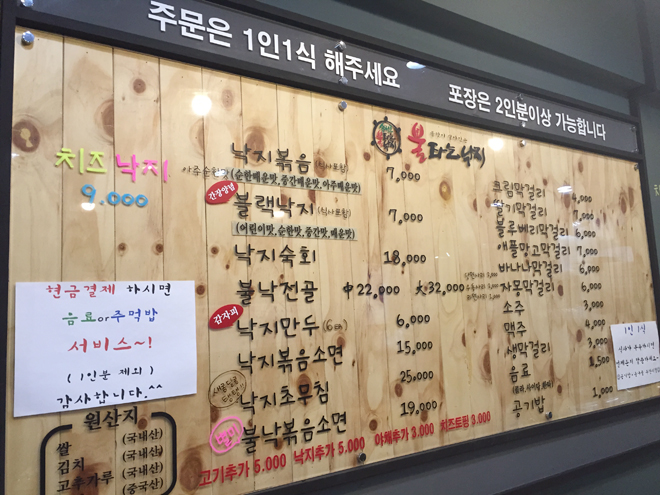 주문은 1인1식 해주세요
포장은 2인분이상 가능합니다
불타는낙지
치즈낙지
9.000
낙지볶음(식사포함) 7,000
(순한매운맛,중간매운맛,아주매운맛)
간장양념
블랙낙지(식사포함) 7,000
(어린이맛,순한맛,중간맛,매운맛)
낙지숙회 18,000
불낙전골 中22,000 大32,000
감자피
낙지만두(6구) 6,000
낙지볶음소면 15,000
낙지초무침 25,000
별미
불낙볶음소면 19,000
고기추가 5.000 낙지추가 5.000 야채추가 3.000 치즈토핑 3.000
크림막걸리 4,000
딸기막걸리 7,000
블루베리막걸리 6,000
애플망고막걸리 7,000
바나나막걸리 6,000
자몽막걸리 6,000
소주 3,000
맥주 4,000
생막걸리 3,000
음료 1,500
공기밥 1,000
현금결제 하시면
음료or주먹밥
서비스~!
(1인분 제외)
감사합니다.^^
원산지
쌀 (국내산)
김치 (국내산)
고추가루 (국내산)
(중국산)
1인 1식